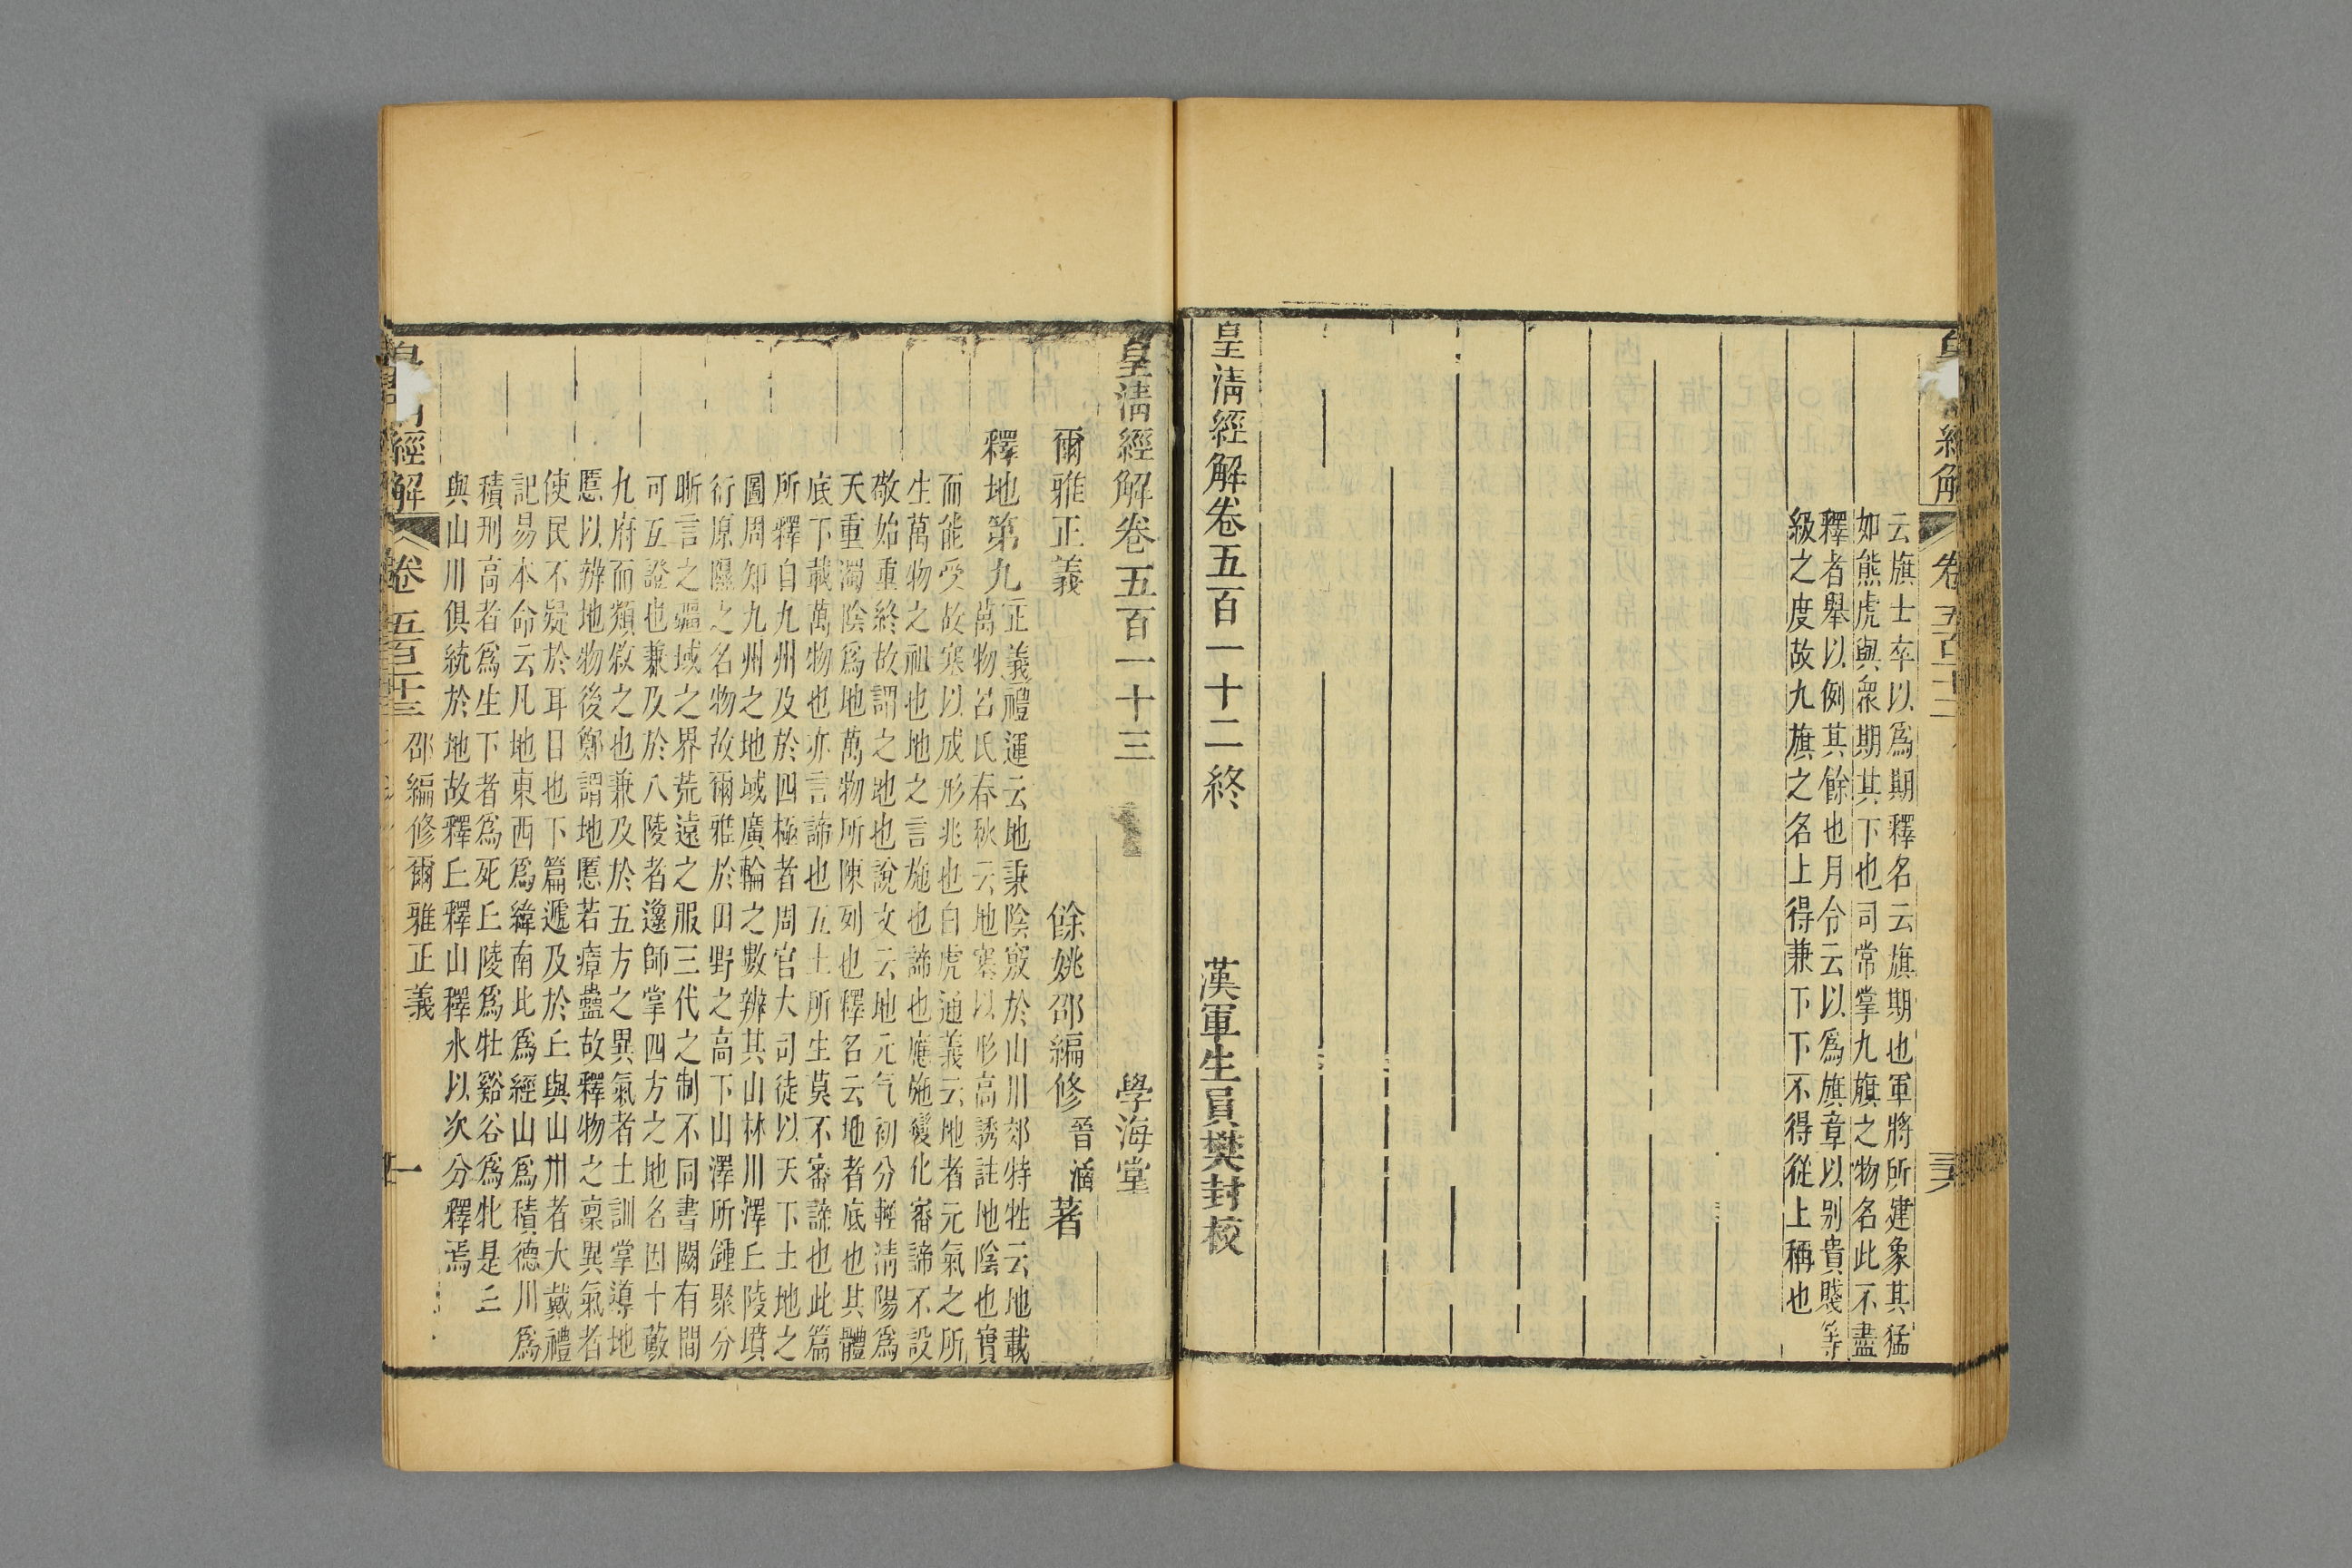 經解
卷五百十二
云旗士卒以爲期釋名云旗期也軍將所建象其猛
如熊虎與衆期其下也司常掌九旗之物名此不盡
釋者舉以例其餘也月令云以爲旗章以别貴賤等
級之度故九旗之名上得兼下下不得從上稱也
皇淸經解卷五百一十二終
漢軍生員樊封校
皇淸經解卷五百一十三
學海堂
爾雅正義
餘姚邵編修晉涵著
釋地第九
正義禮運云地秉陰竅於山川郊特牲云地載
萬物呂氏春秋云地塞以形高誘註地陰也實
而能受故塞以成形兆也白虎通義云地者元氣之所
生萬物之祖也地之言施也諦也應施變化審諦不設
敬始重終故謂之地也說文云地元气初分輕淸陽爲
天重濁陰爲地萬物所陳列也釋名云地者底也其體
底下載萬物也亦言諦也五土所生莫不審諦也此篇
所釋自九州及於四極者周官大司徒以天下土地之
圖周知九州之地域廣輪之數辨其山林川澤丘陵墳
衍原隰之名物故爾雅於田野之高下山澤所鍾聚分
晰言之疆域之界荒遠之服三代之制不同書闕有間
可互證也兼及於八陵者邍師掌四方之地名因十藪
九府而類敘之也兼及於五方之異氣者土訓掌導地
慝以辨地物後鄭謂地慝若瘴蠱故釋物之稟異氣者
使民不疑於耳目也下篇遞及於丘與山川者大戴禮
記易本命云凡地東西爲緯南北爲經山爲積德川爲
積刑高者爲生下者爲死丘陵爲牡谿谷爲牝是丘
與山川俱統於地故釋丘釋山釋水以次分釋焉
經解
卷五百十三
邵編修爾雅正義
一